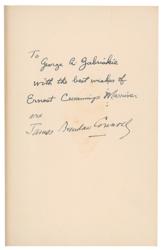 To
George A. Gabriskie
with the best wishes of
Ernest Cummings Marriner
and
James Brendan Connolly